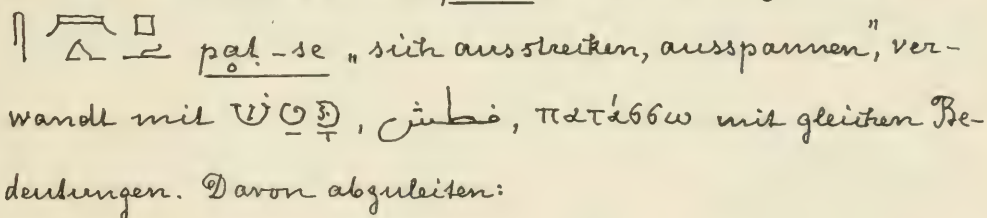 pḁṭ-se „sich ausstrecken, ausspannen", ver-
wandt mit פָּטַשׁ, فطش, πατάσσω mit gleichen Be-
deutungen. Davon abzuleiten: